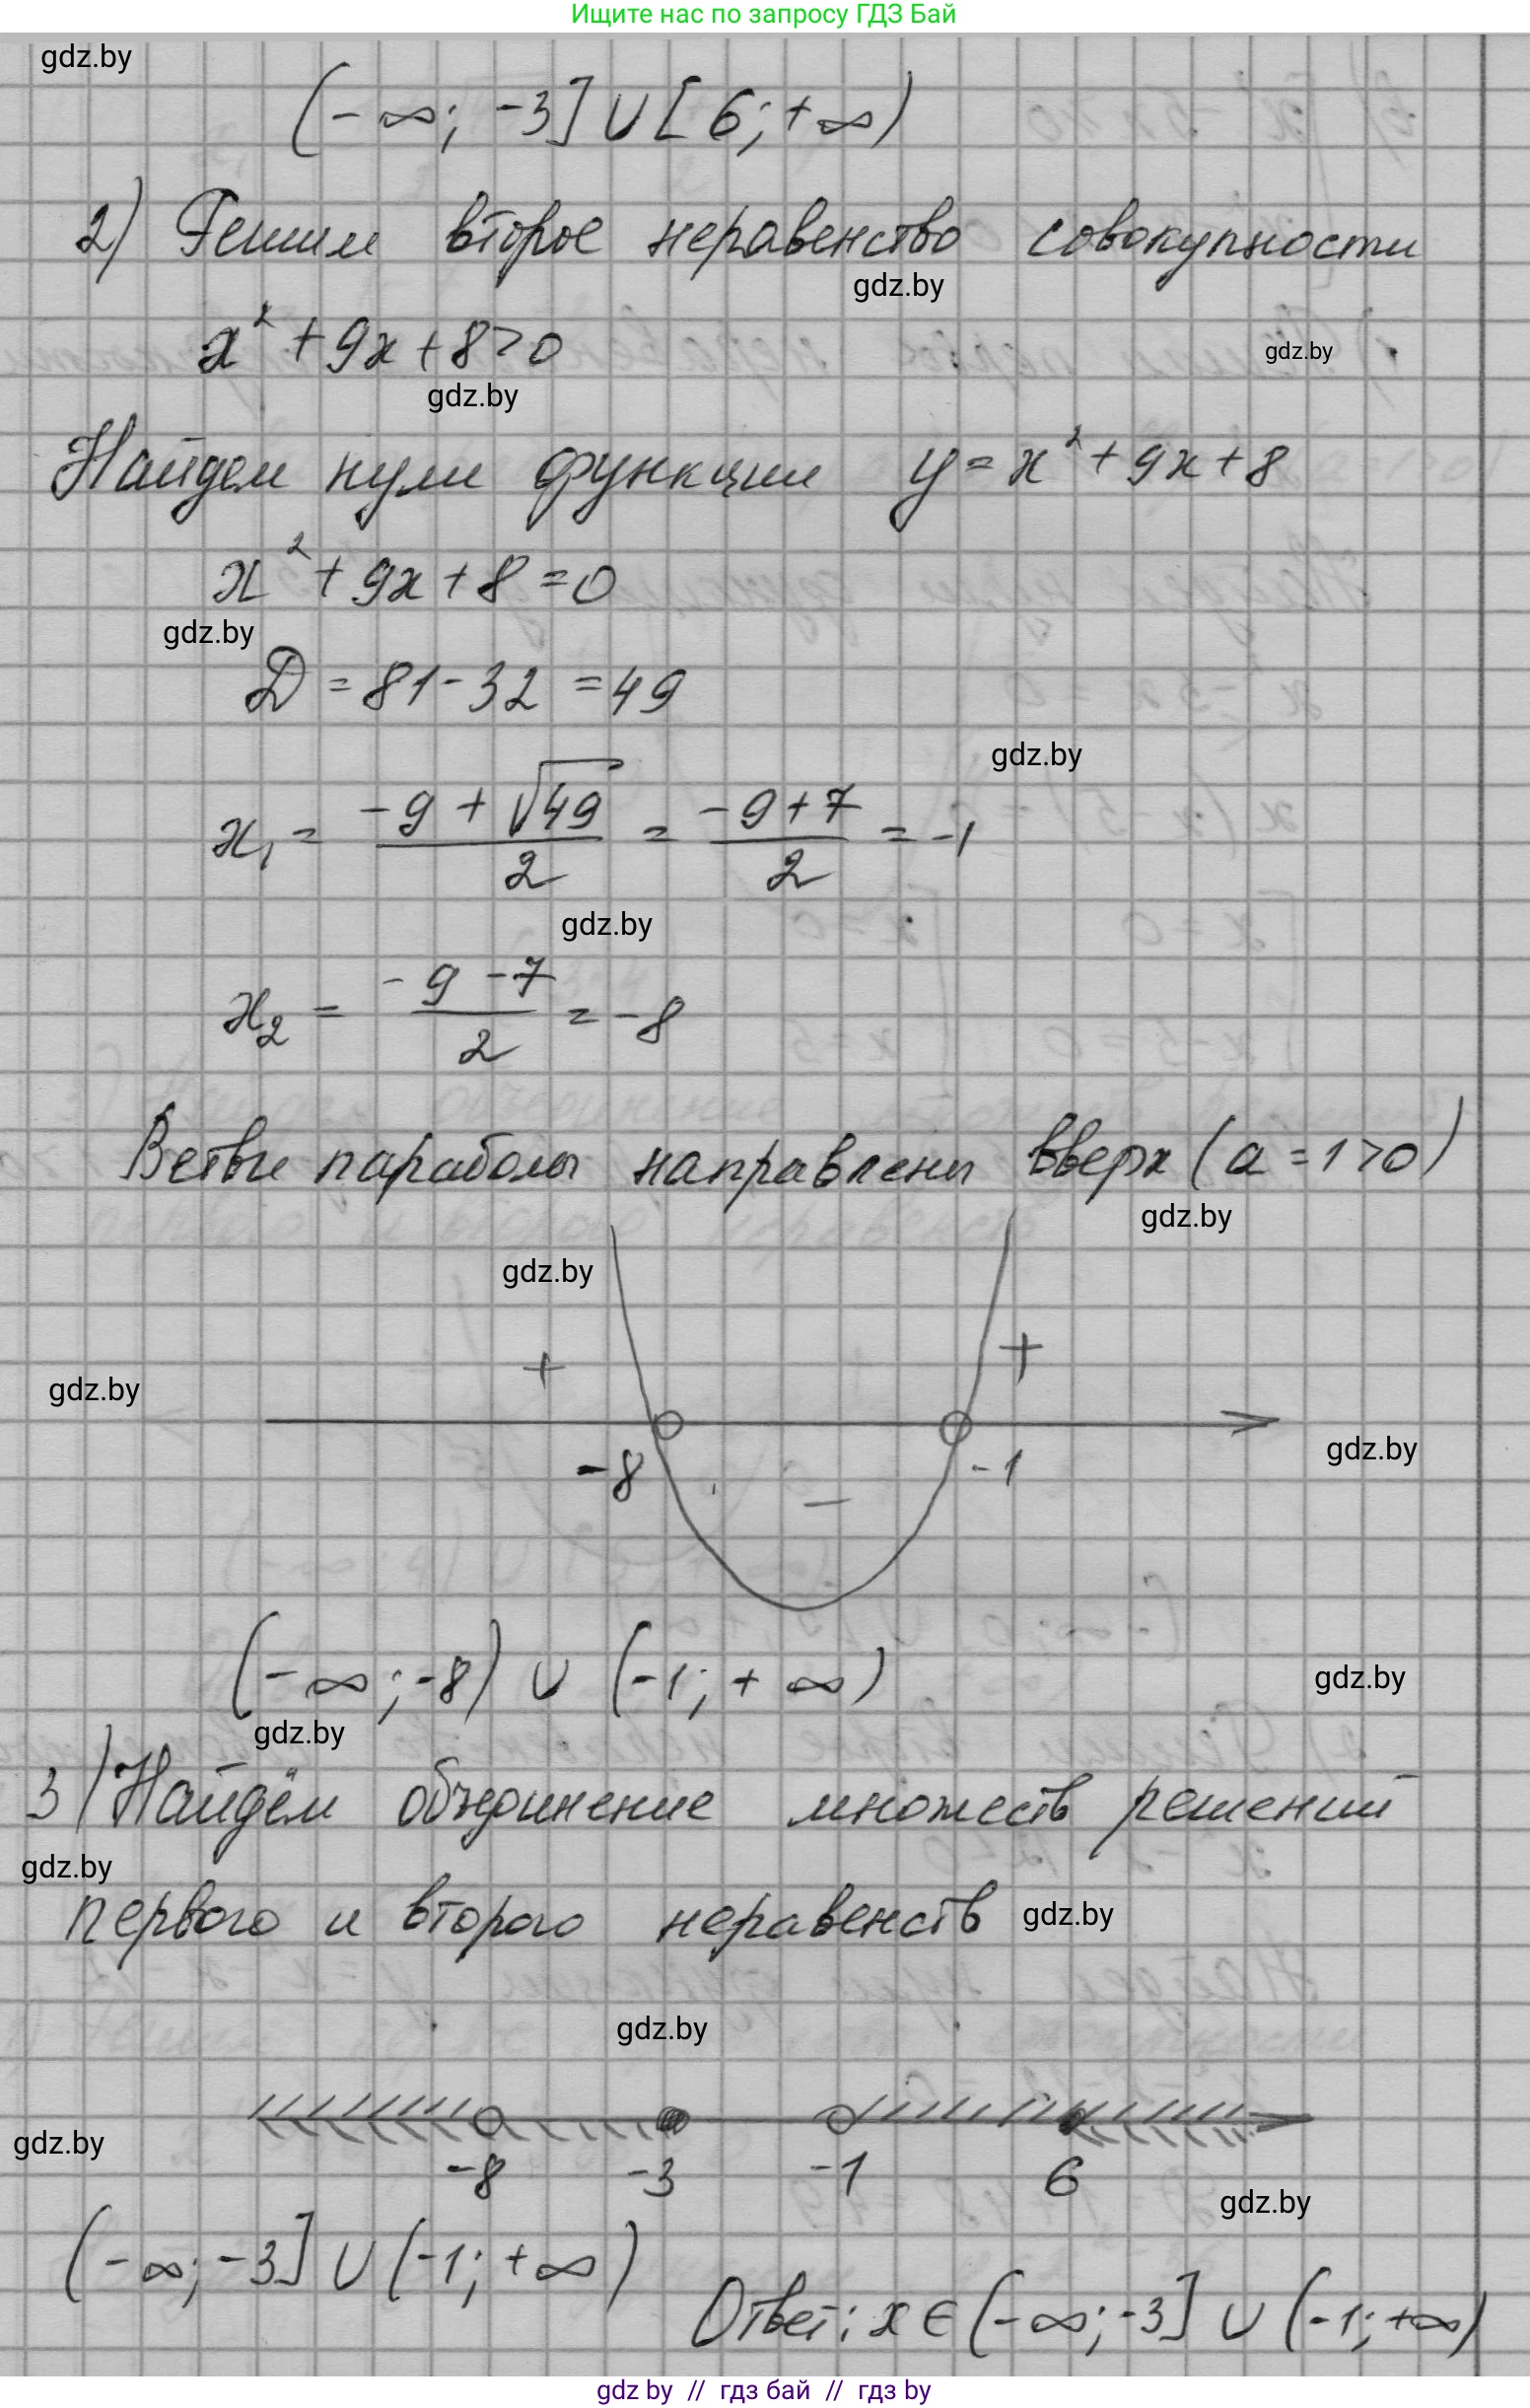 Ищите нас по запросу ГДЗ Бай
gdz.by
(-∞; -3] ∪ [6; +∞)
2) Решим второе неравенство совокупности
gdz.by
x² + 9x + 8 > 0
gdz.by
gdz.by
Найдем нули функции y = x² + 9x + 8
x² + 9x + 8 = 0
gdz.by
D = 81 - 32 = 49
gdz.by
x₁ = (-9 + √49)/2 = (-9 + 7)/2 = -1
gdz.by
x₂ = (-9 - 7)/2 = -8
Ветви параболы направлены вверх (a = 1 > 0)
gdz.by
gdz.by
+ +
gdz.by
gdz.by
-8 - -1
(-∞; -8) ∪ (-1; +∞)
gdz.by
gdz.by
3) Найдём объединение множеств решений
gdz.by
первого и второго неравенств
gdz.by
gdz.by
gdz.by
-8 -3 -1 6
gdz.by
(-∞; -3] ∪ (-1; +∞)
Ответ: x ∈ (-∞; -3] ∪ (-1; +∞)
gdz by // гдз бай // гдз by